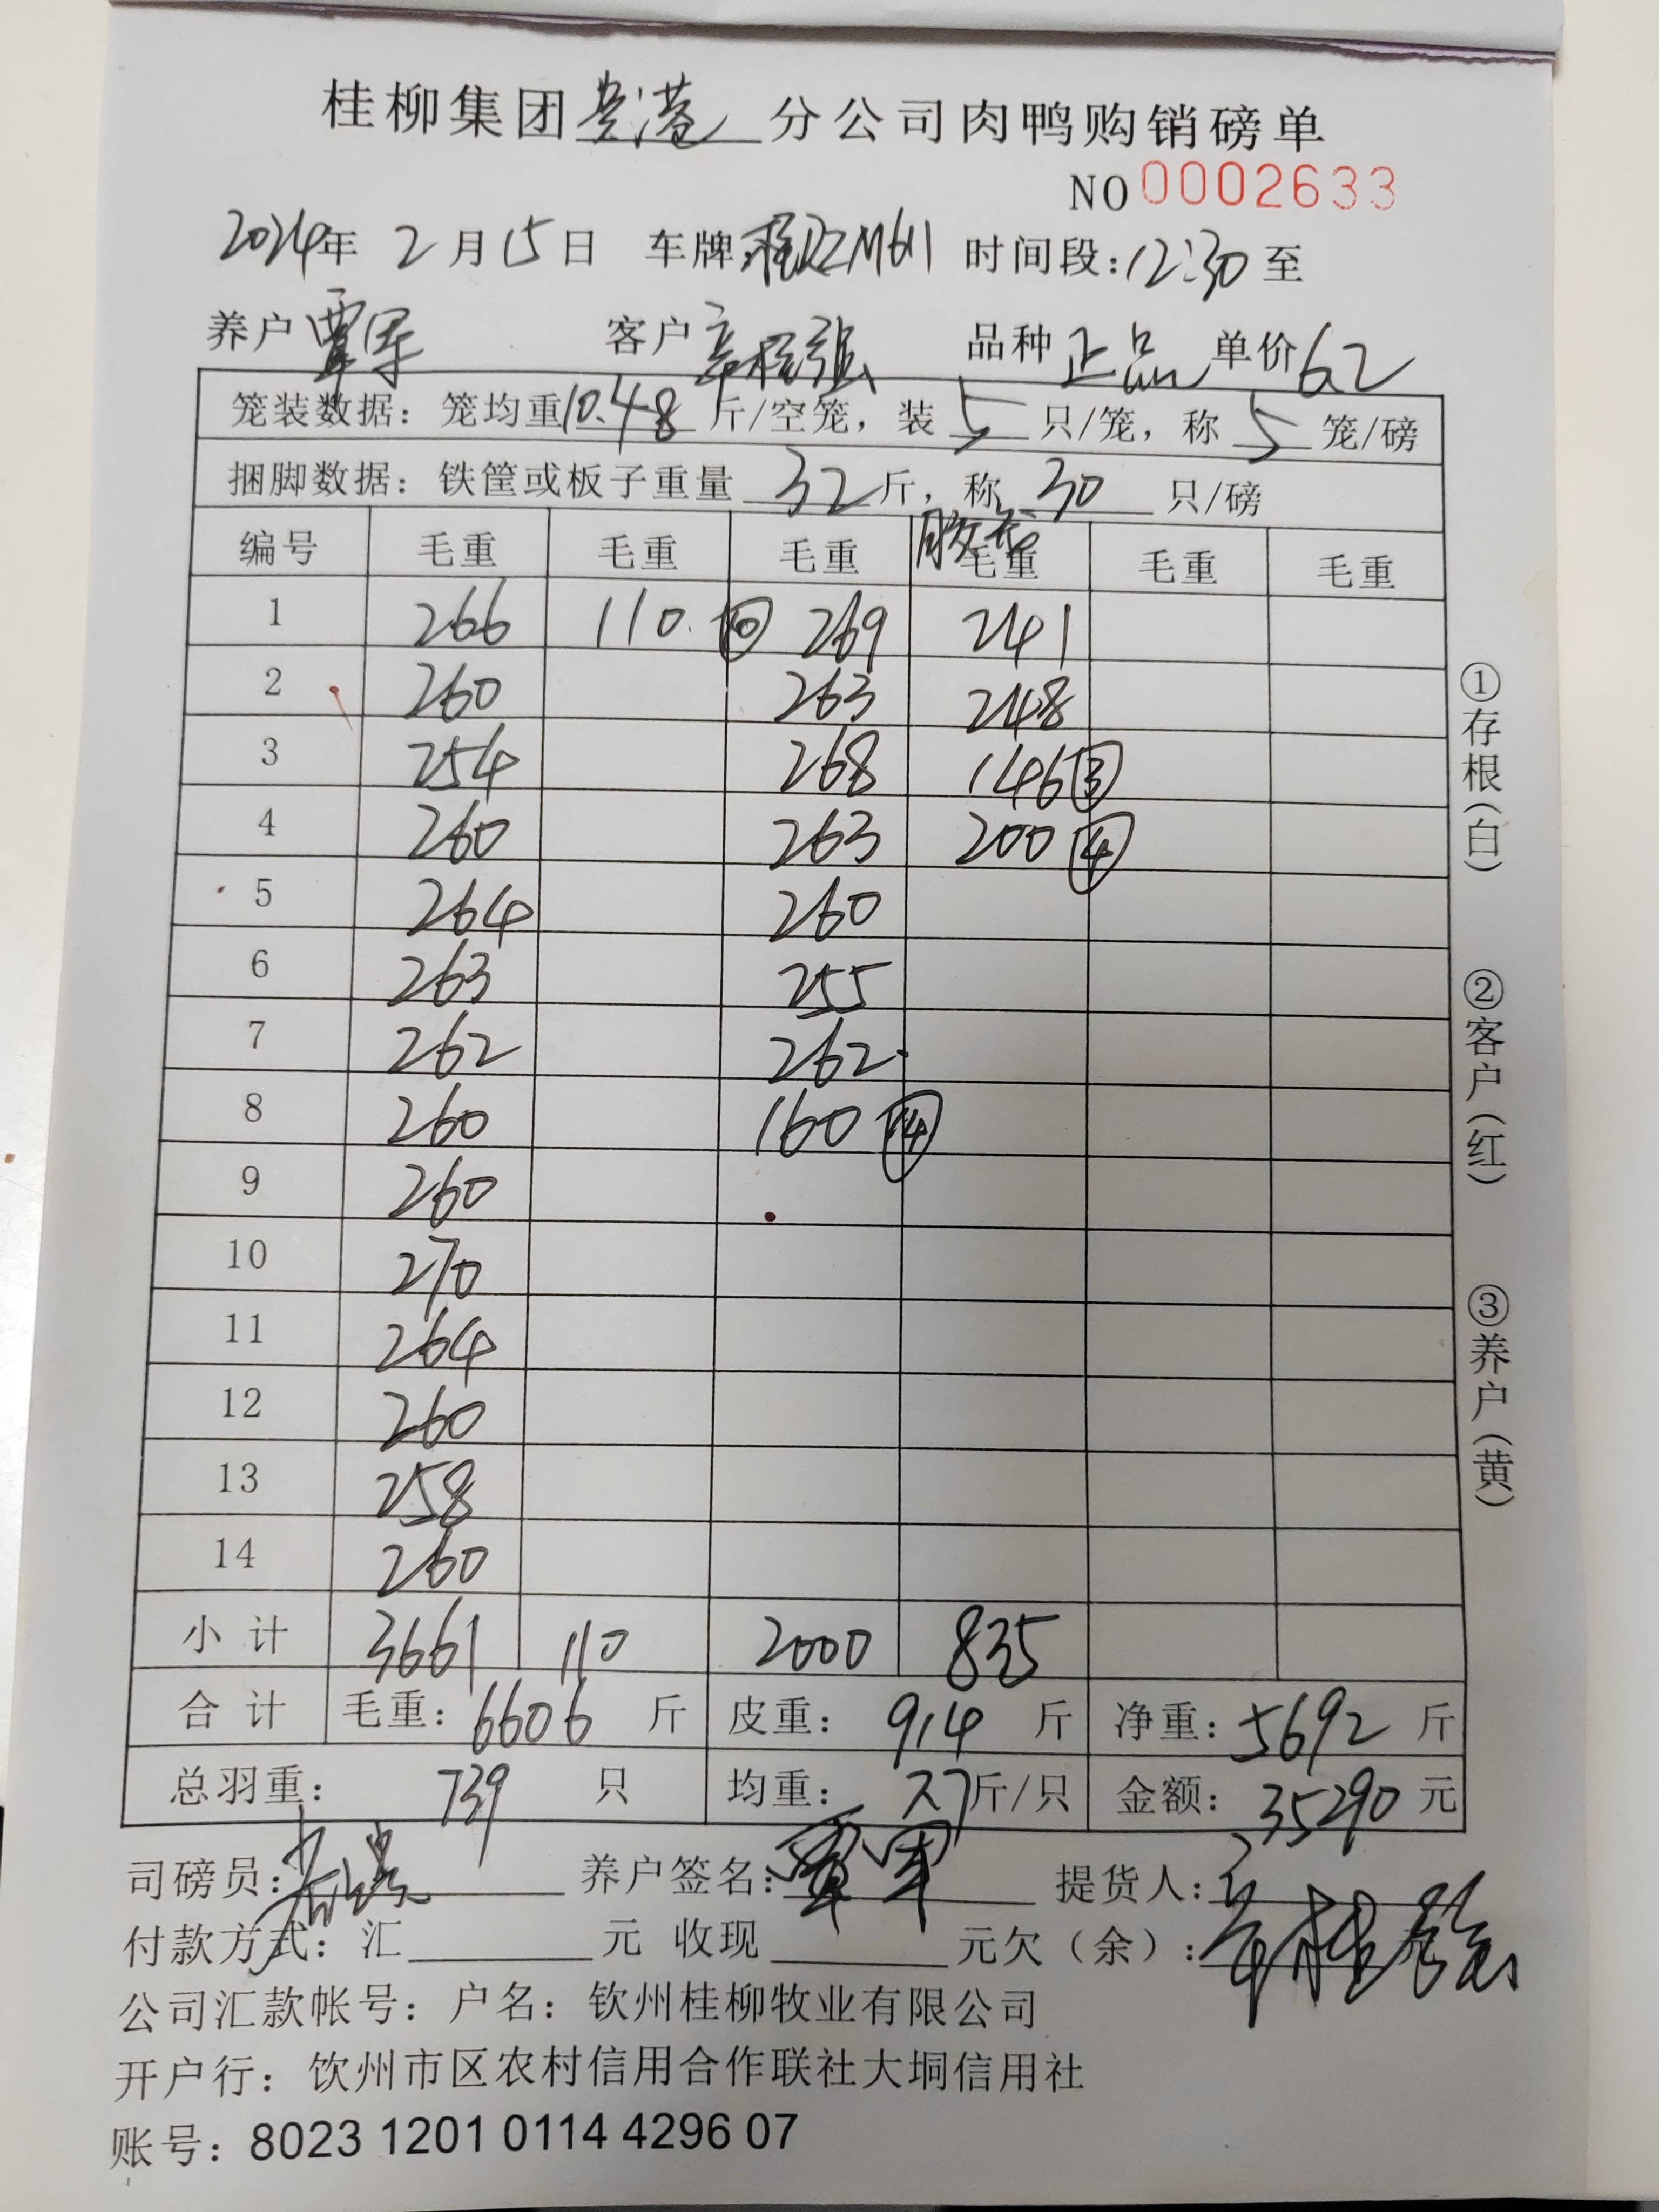 桂柳集团贵港分公司肉鸭购销磅单
NO 0002633
2024年 2月15日 车牌 M611 时间段:12:30至
养户 覃军 客户 品种 正品 单价 6.2
笼装数据: 笼均重10.48斤/空笼, 装5只/笼, 称5笼/磅
捆脚数据: 铁筐或板子重量32斤, 称30只/磅
胶
编号 毛重 毛重 毛重 毛重 毛重 毛重
1 266 110. ⑩ 269 241
2 260 263 248
3 254 268 146 ③
4 260 263 200 ④
5 264 260
6 263 255
7 262 262
8 260 160 ⑭
9 260
10 270
11 264
12 260
13 258
14 260
小计 3661 110 2000 835
合计 毛重: 6606 斤 皮重: 914 斤 净重: 5692 斤
总羽重: 739 只 均重: 7.7 斤/只 金额: 35290 元
司磅员: 养户签名: 覃军 提货人:
付款方式: 汇 元 收现 元欠(余): 元
公司汇款帐号: 户名: 钦州桂柳牧业有限公司
开户行: 钦州市区农村信用合作联社大垌信用社
账号: 8023 1201 0114 4296 07
①存根(白)
②客户(红)
③养户(黄)